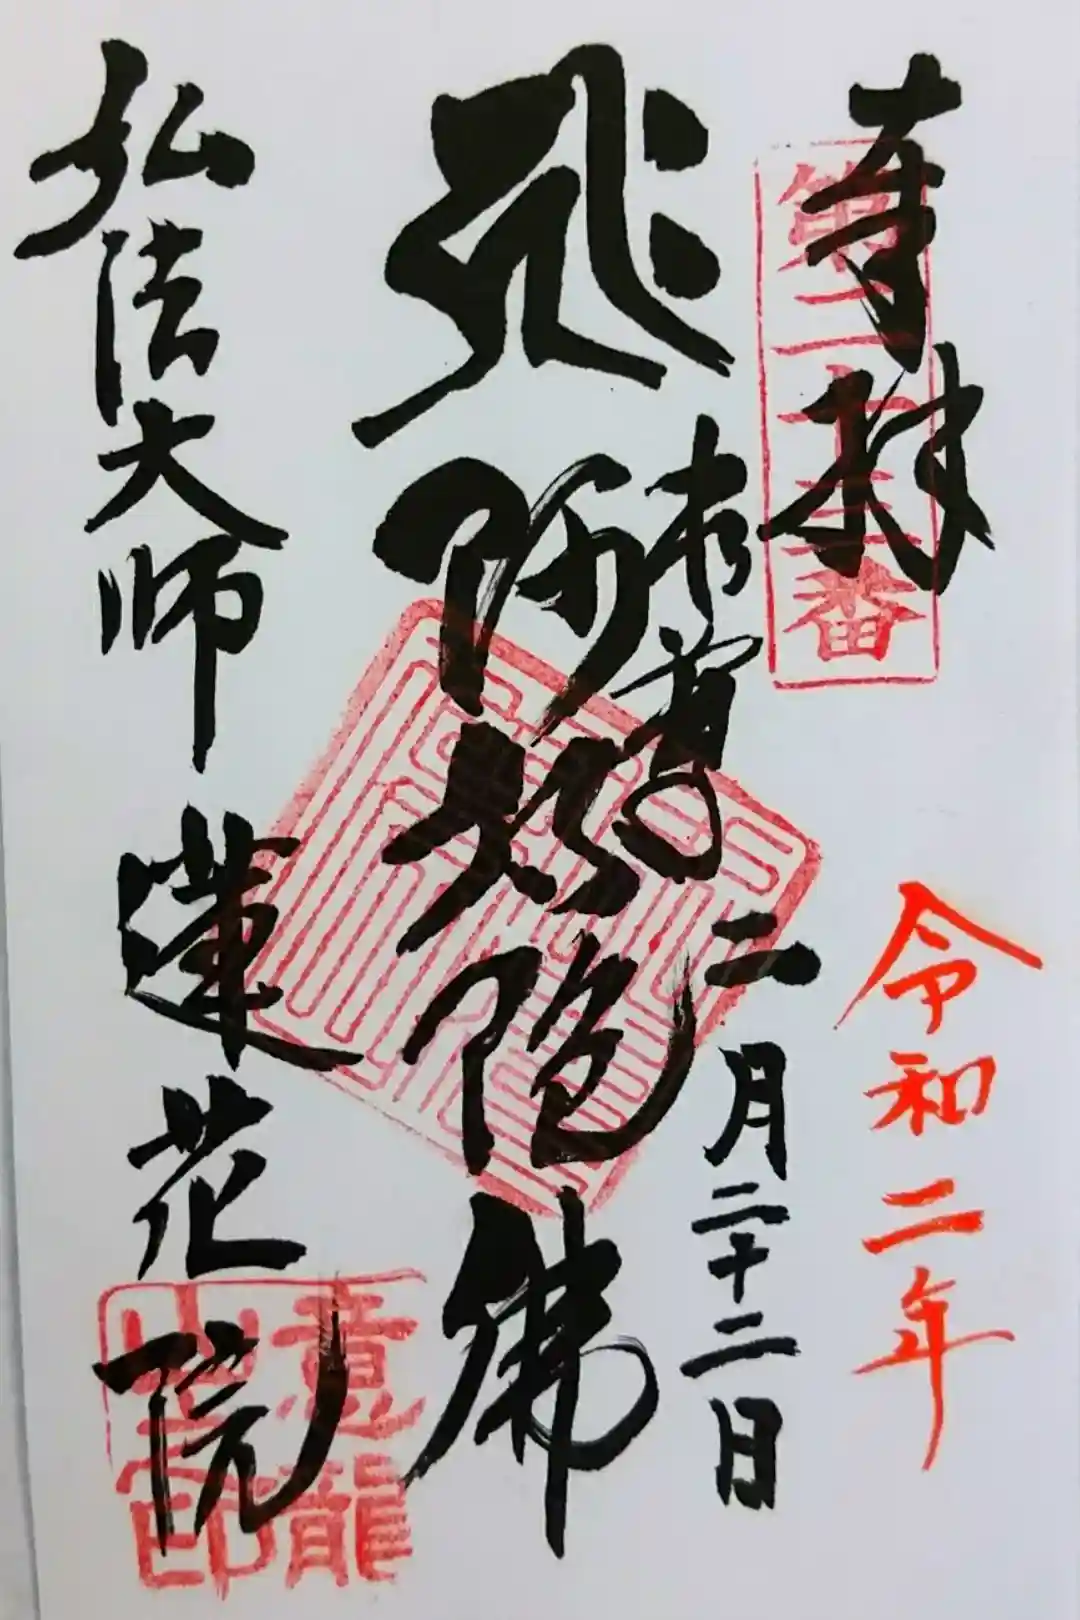 奉拝
第二十三番
令和二年
二月二十二日
本尊
阿弥陀佛
弘法大師 蓮花院
意龍